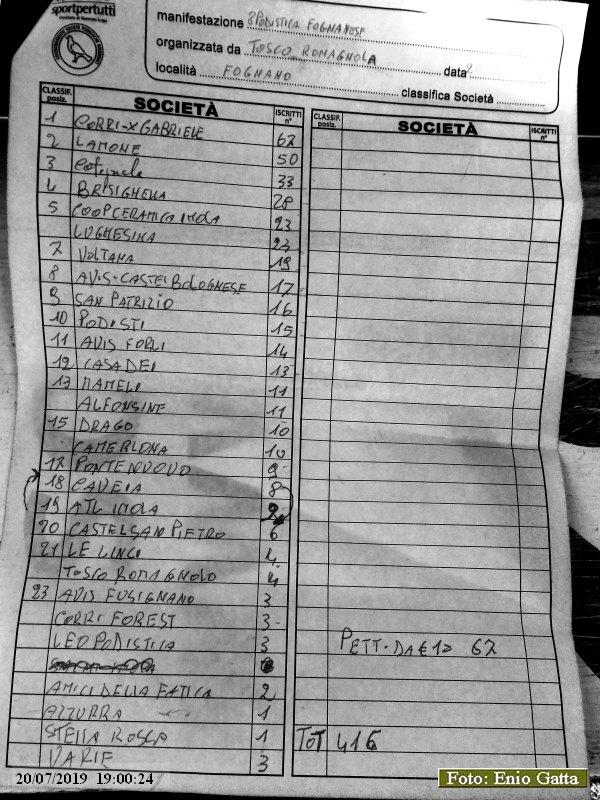 sportpertutti
manifestazione 8 PODISTICA FOGNANESE
organizzata da TOSCO ROMAGNOLA data
località FOGNANO classifica Società
CLASSIF. posiz. SOCIETÀ ISCRITTI n° CLASSIF. posiz. SOCIETÀ ISCRITTI n°
1 CORRI-X GABRIELE 67
2 LAMONE 50
3 Cotignola 33
4 BRISIGHELLA 28
5 COOPCERAMICA IMOLA 23
LUGHESINA 23
7 VOLTANA 19
8 AVIS-CASTELBOLOGNESE 17
9 SAN PATRIZIO 16
10 PODISTI 15
11 AVIS FORLI 14
12 CASADEI 13
13 MAMELI 11
ALFONSINE 11
15 DRAGO 10
CAMERLONA 10
17 PONTENUOVO 9
18 CAVEIA 8
19 ATL IMOLA
20 CASTELSAN PIETRO 6
21 LE LINCI 4
TOSCO ROMAGNOLO 4
23 AVIS FUSIGNANO 3
CORRI FOREST 3
LEO PODISTICA 3 PETT. DA €12 67
AMICI DELLA FATICA 2
AZZURRA 1
STELLA ROSSA 1 TOT 416
VARIE 3
20/07/2019 19:00:24
Foto: Enio Gatta